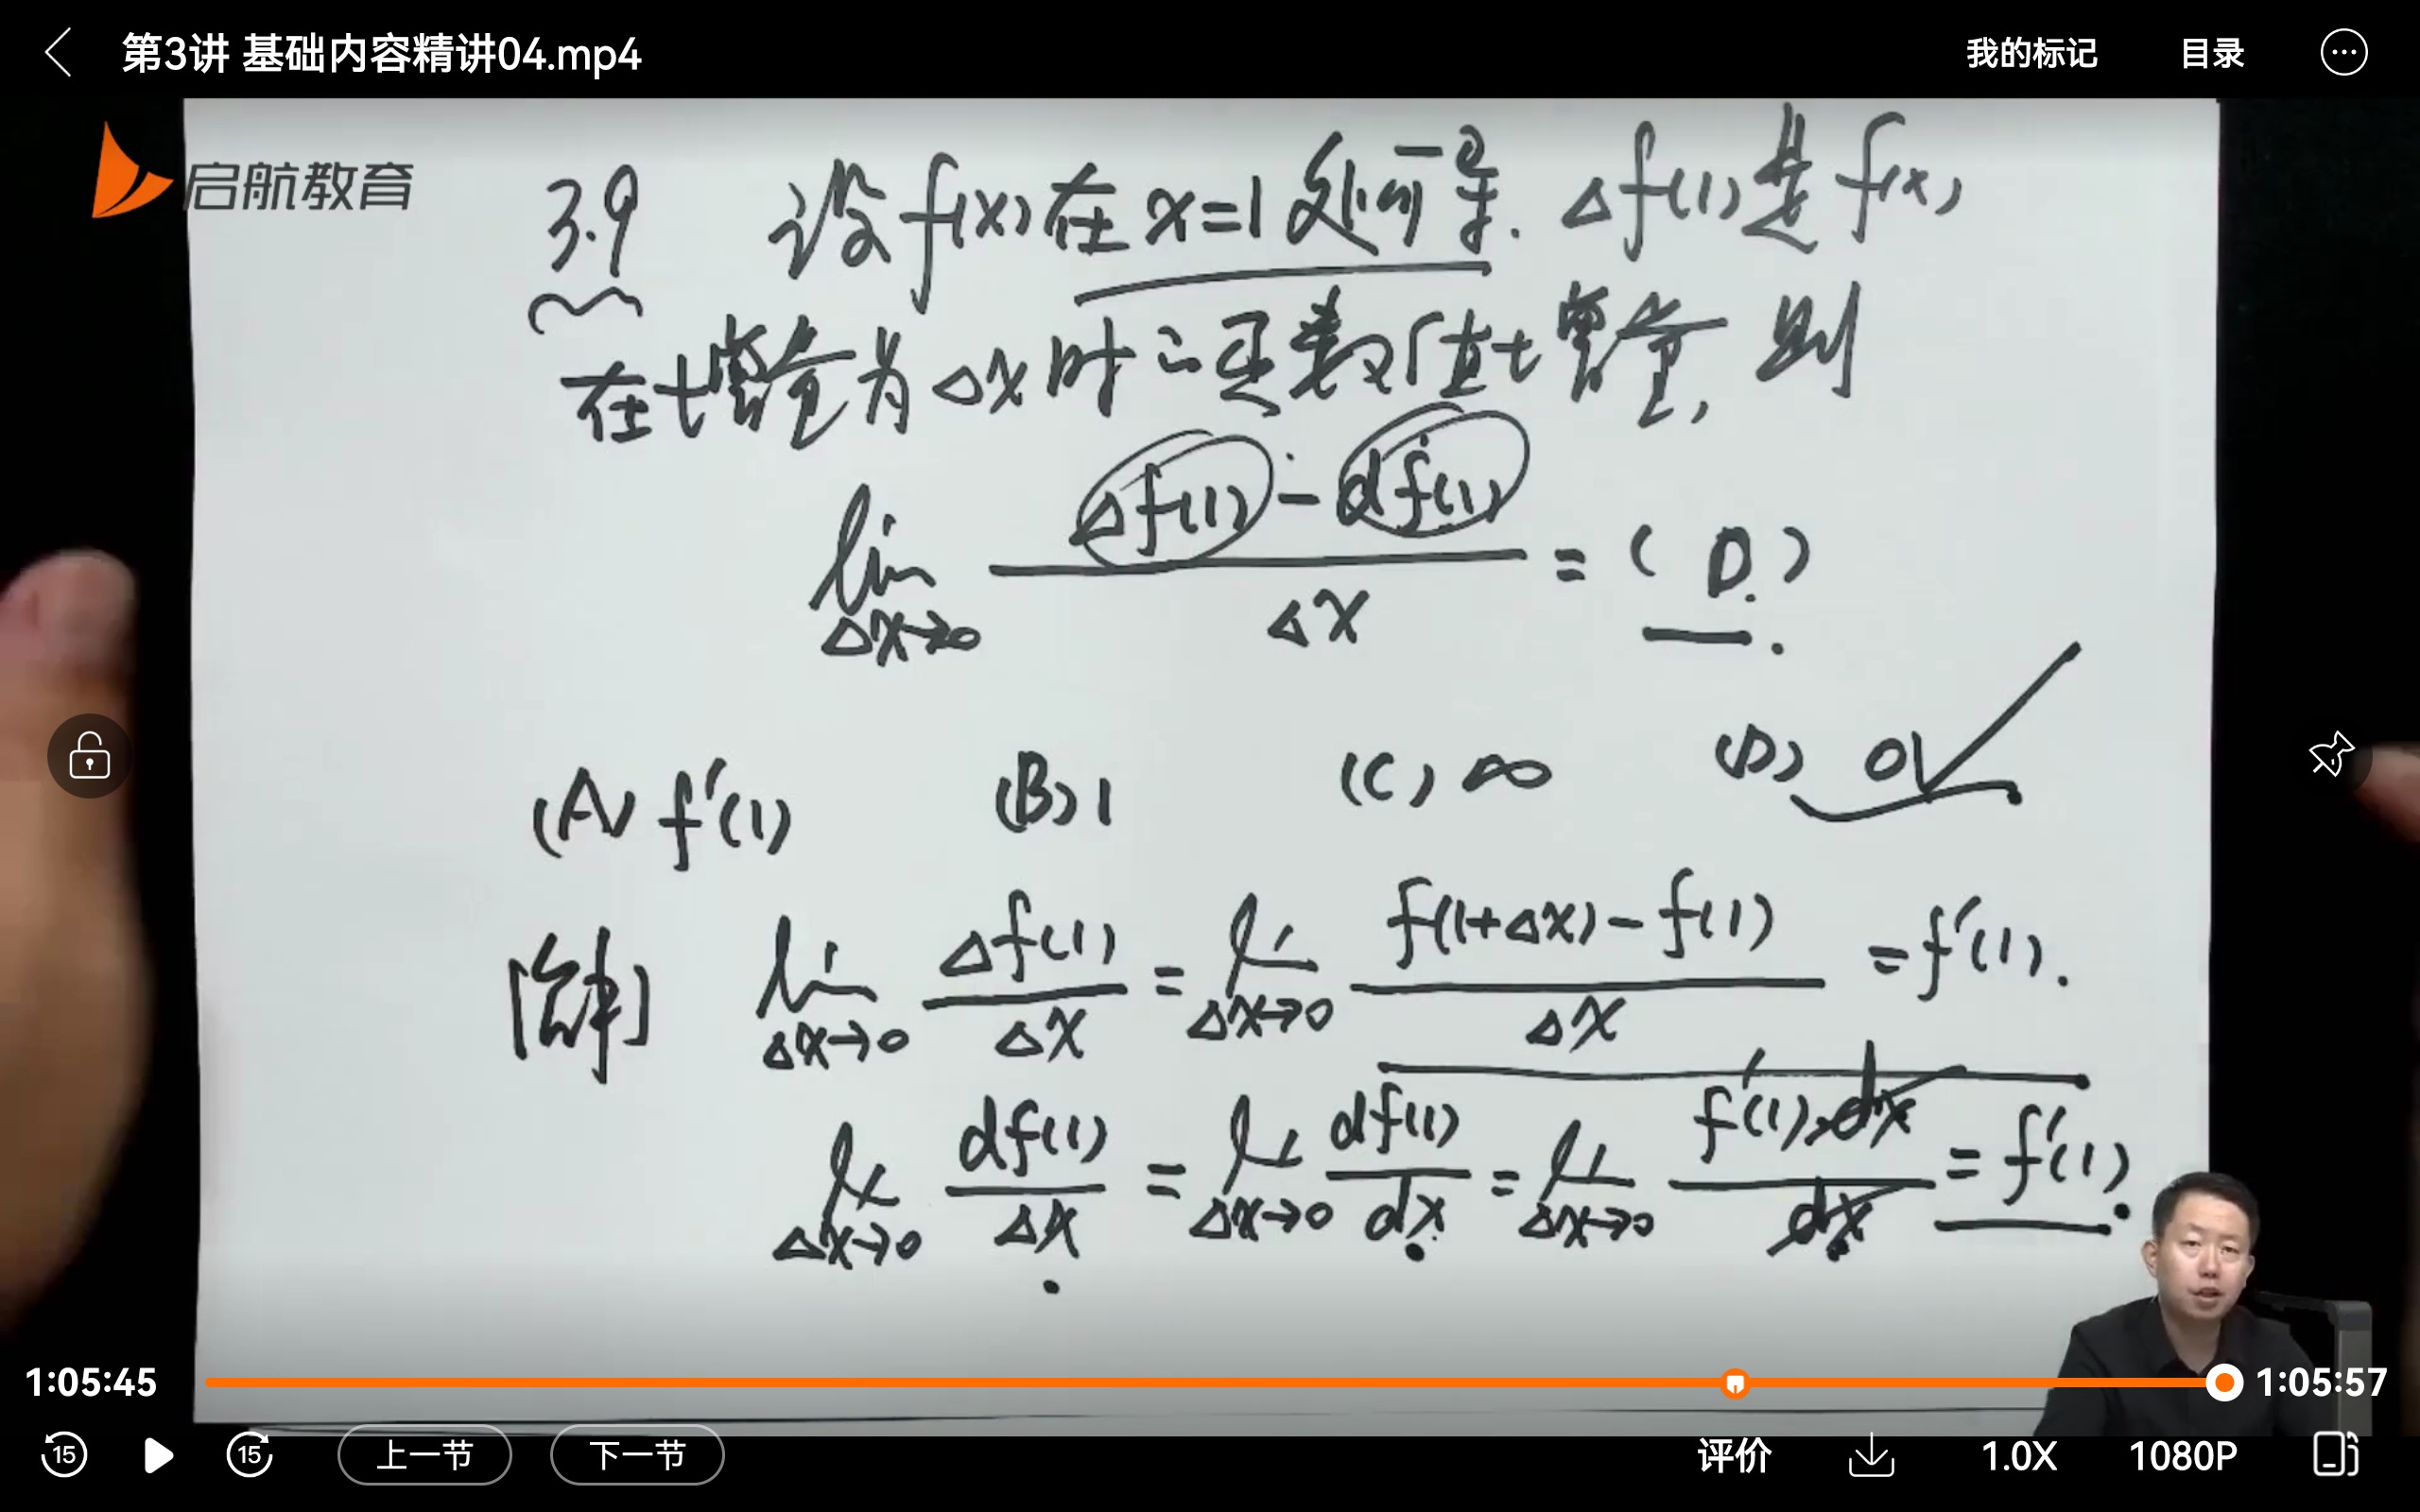 第3讲 基础内容精讲04.mp4
我的标记
目录
启航教育
3.9 设f(x)在x=1处可导. Δf(1)是f(x)
在增量为Δx时的函数值增量, 则
lim Δx→0 (Δf(1) - df(1)) / Δx = ( D. )
(A) f'(1) (B) 1 (C) ∞ (D) 0
[解] lim Δx→0 Δf(1) / Δx = lim Δx→0 (f(1+Δx) - f(1)) / Δx = f'(1).
lim Δx→0 df(1) / Δx = lim Δx→0 df(1) / dx = lim Δx→0 f'(1)·dx / dx = f'(1).
1:05:45
1:05:57
15
15
上一节
下一节
评价
1.0X
1080P